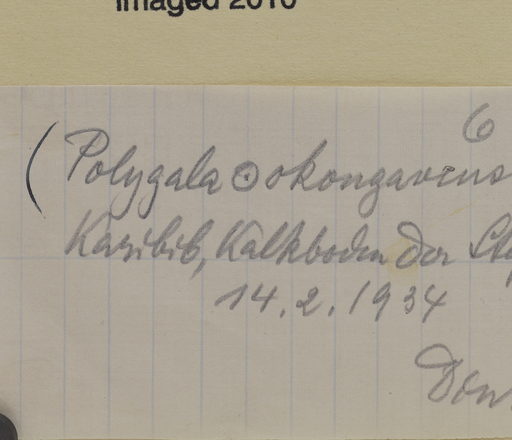 Imaged 2010
6
(Polygala ⊙ okongavens
Karibib, Kalkboden der Ste
14.2.1934